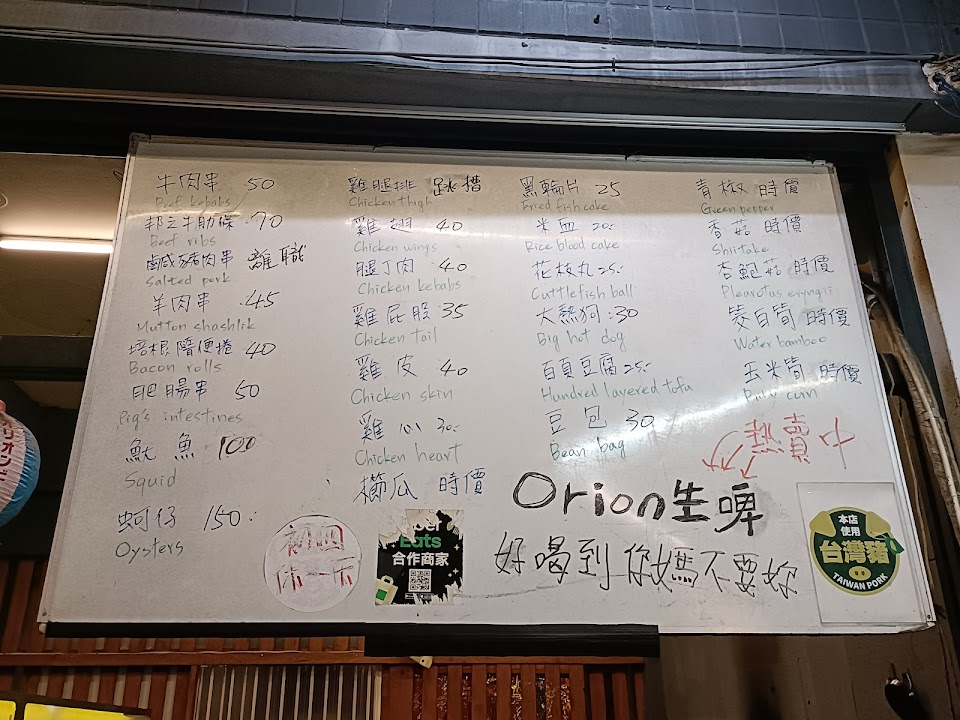 牛肉串 50
Beef kebabs
邦尼牛肋條 70
Beef ribs
鹹豬肉串 離職
Salted pork
羊肉串 45
Mutton shashlik
培根隨便捲 40
Bacon rolls
肥腸串 50
Pig's intestines
魷魚 100
Squid
蚵仔 150
Oysters
雞腿排 跳槽
Chicken thigh
雞翅 40
Chicken wings
腿丁肉 40
Chicken kebabs
雞屁股 35
Chicken tail
雞皮 40
Chicken skin
雞心 30
Chicken heart
櫛瓜 時價
黑輪片 25
Fried fish cake
米血 20
Rice blood cake
花枝丸 25
Cuttlefish ball
大熱狗 30
Big hot dog
百頁豆腐 25
Hundred layered tofu
豆包 30
Bean bag
青椒 時價
Green pepper
香菇 時價
Shiitake
杏鮑菇 時價
Pleurotus eryngii
筊白筍 時價
Water bamboo
玉米筍 時價
Baby corn
Orion生啤
好喝到你媽不要妳
Eats
合作商家
本店
使用
台灣豬
TAIWAN PORK